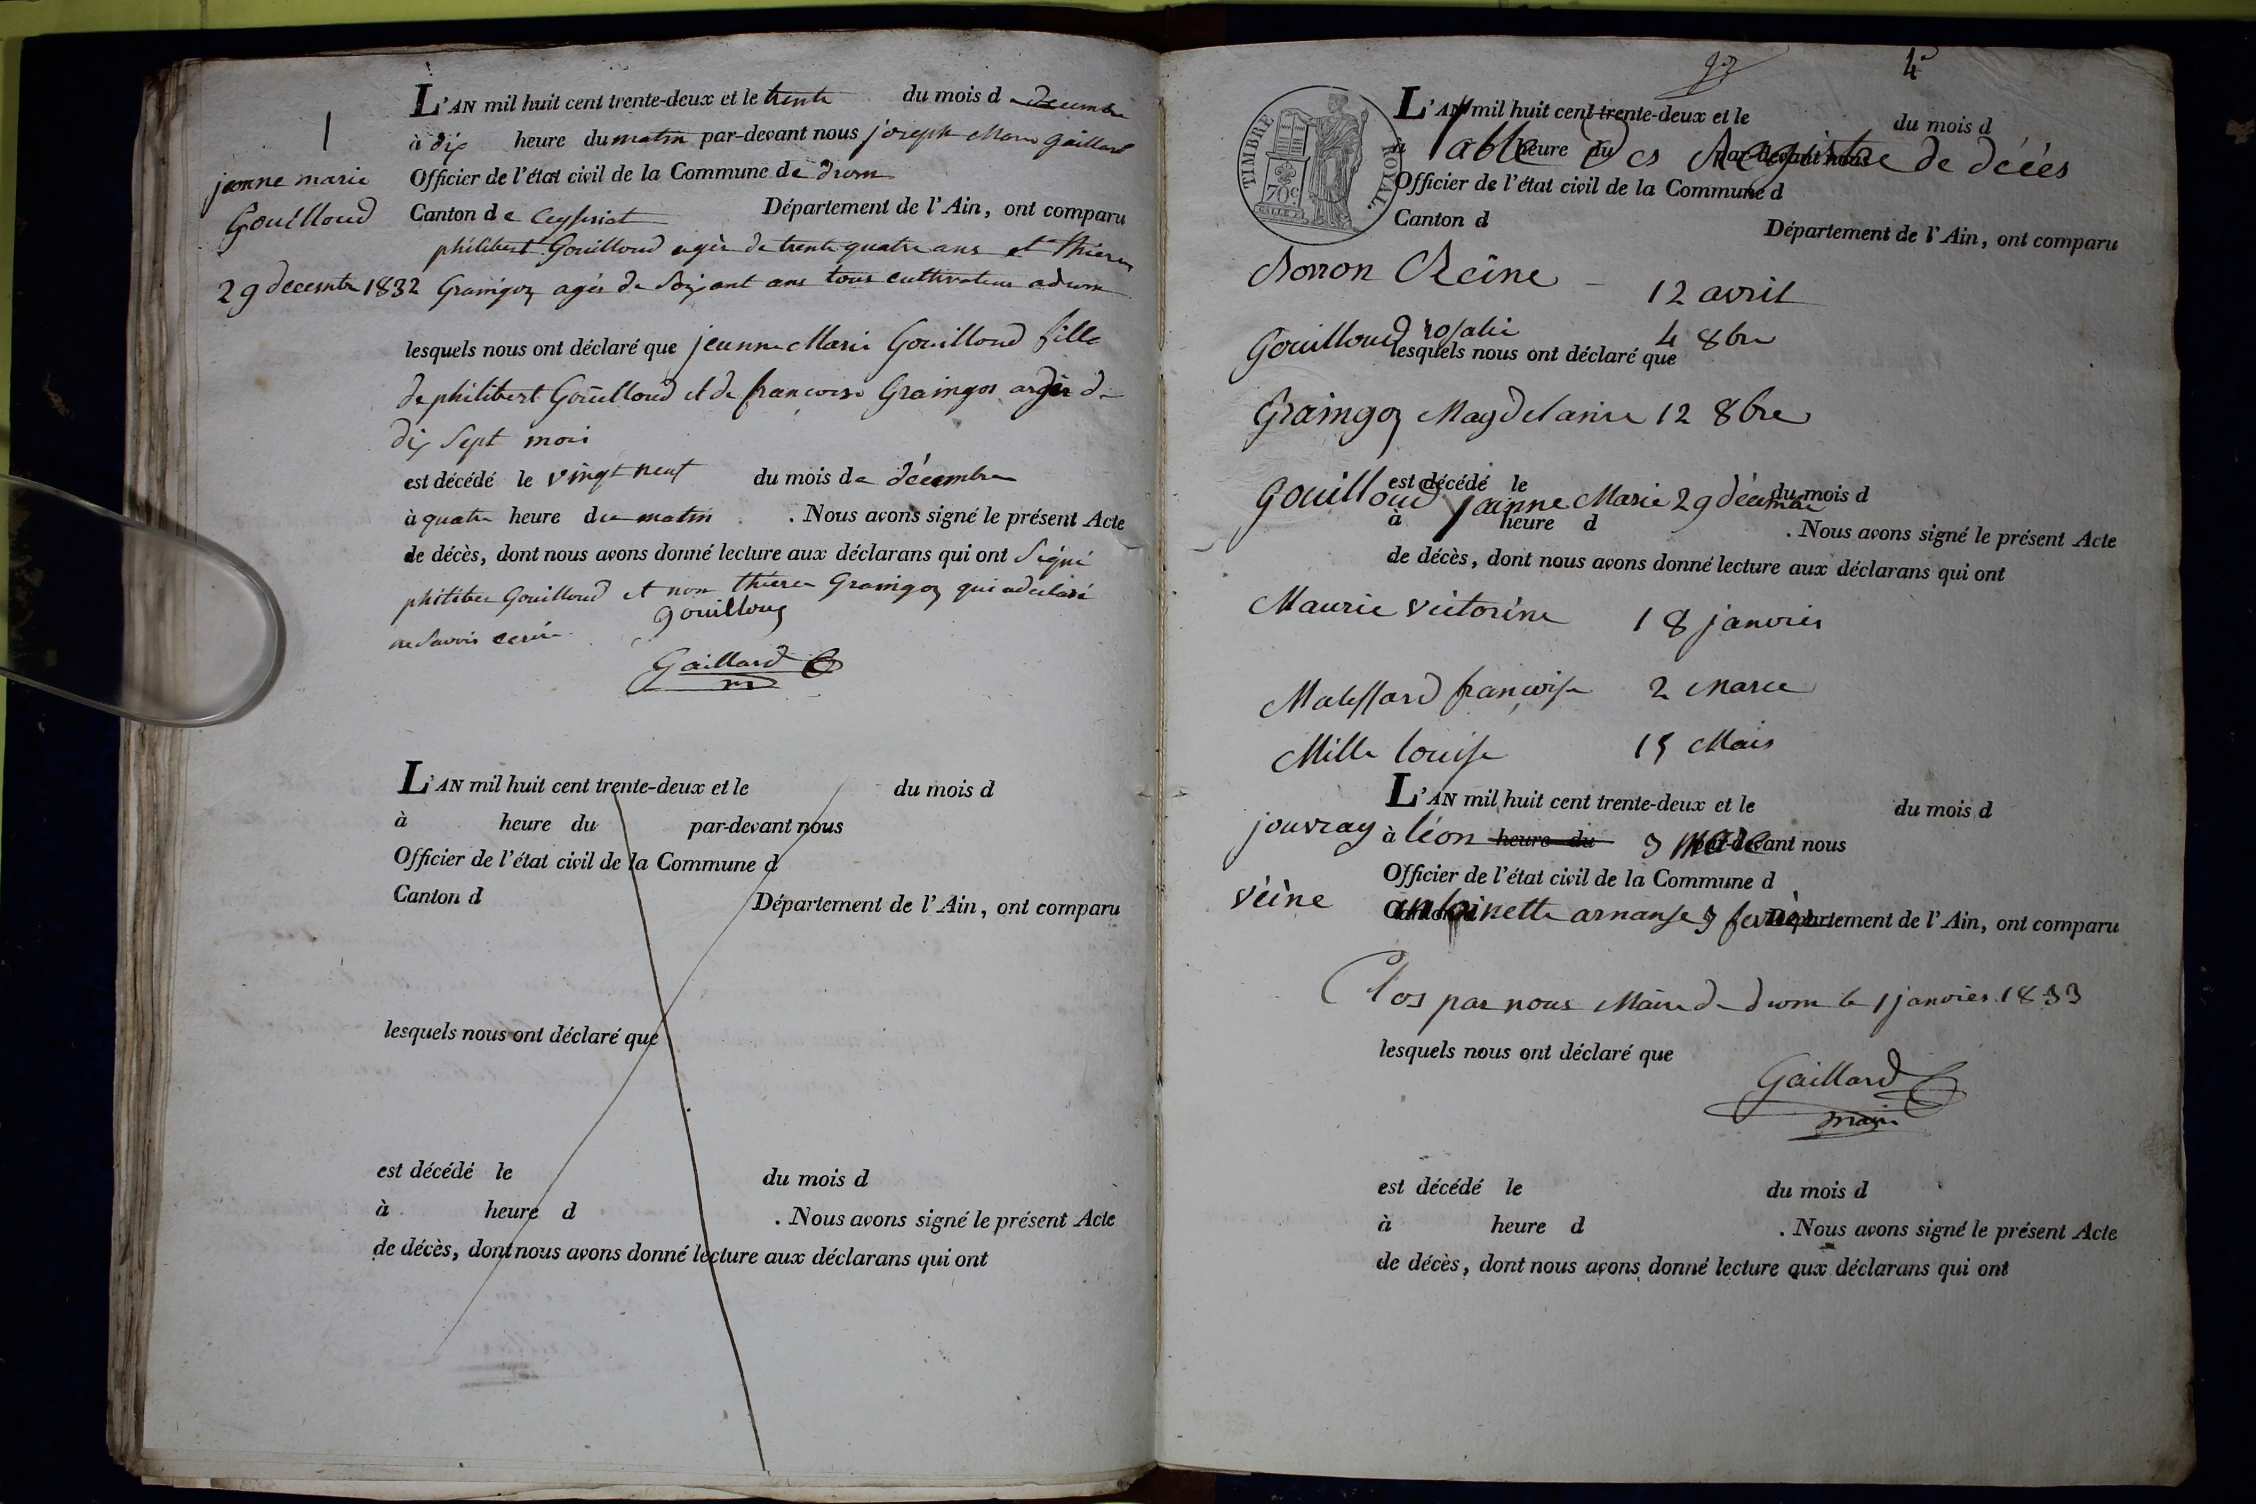 1
jeanne marie
Gouilloud
29 decembre 1832
L'AN mil huit cent trente-deux et le trente du mois d decembre
à dix heure du matin par-devant nous joseph Marie Gaillard
Officier de l'état civil de la Commune de drom
Canton de Ceyseriat Département de l'Ain, ont comparu
philibert Gouilloud agés de trente quatre ans et
Graingoz agés de Soixant ans tous cultivateur a drom
lesquels nous ont déclaré que jeanne Marie Gouilloud fille
de philibert Gouilloud et de francoise Graingoz de
dix Sept mois
est décédé le vingt neuf du mois de décembre
à quatre heure du matin . Nous avons signé le présent Acte
de décès, dont nous avons donné lecture aux déclarans qui ont Signé
philibert Gouilloud et non Graingoz qui a declaré
ne Savoir
gouilloud
Gaillard
L'AN mil huit cent trente-deux et le du mois d
à heure du par-devant nous
Officier de l'état civil de la Commune d
Canton d Département de l'Ain, ont comparu
lesquels nous ont déclaré que
est décédé le du mois d
à heure d . Nous avons signé le présent Acte
de décès, dont nous avons donné lecture aux déclarans qui ont
4e
TIMBRE ROYAL.
70c
L'AN mil huit cent trente-deux et le du mois d
à heure du par-devant nous
Table Des Registre de décès
Officier de l'état civil de la Commune d
Canton d Département de l'Ain, ont comparu
Reine 12 avril
Gouilloud rosalie 4 8bre
lesquels nous ont déclaré que
Graingoz Magdelaine 12 8bre
est décédé le du mois d
Gouilloud jeanne Marie 29 décembre
à heure d . Nous avons signé le présent Acte
de décès, dont nous avons donné lecture aux déclarans qui ont
Maurie victorine 18 janvier
françoise 2 Marce
Mille louise 15 Mars
L'AN mil huit cent trente-deux et le du mois d
jouvray à léon heure du 3 par-devant nous
Officier de l'état civil de la Commune d
antoinette Canton d Département de l'Ain, ont comparu
Clos par nous Maire de drom le 1 janvier 1833
lesquels nous ont déclaré que
Gaillard
maire
est décédé le du mois d
à heure d . Nous avons signé le présent Acte
de décès, dont nous avons donné lecture aux déclarans qui ont